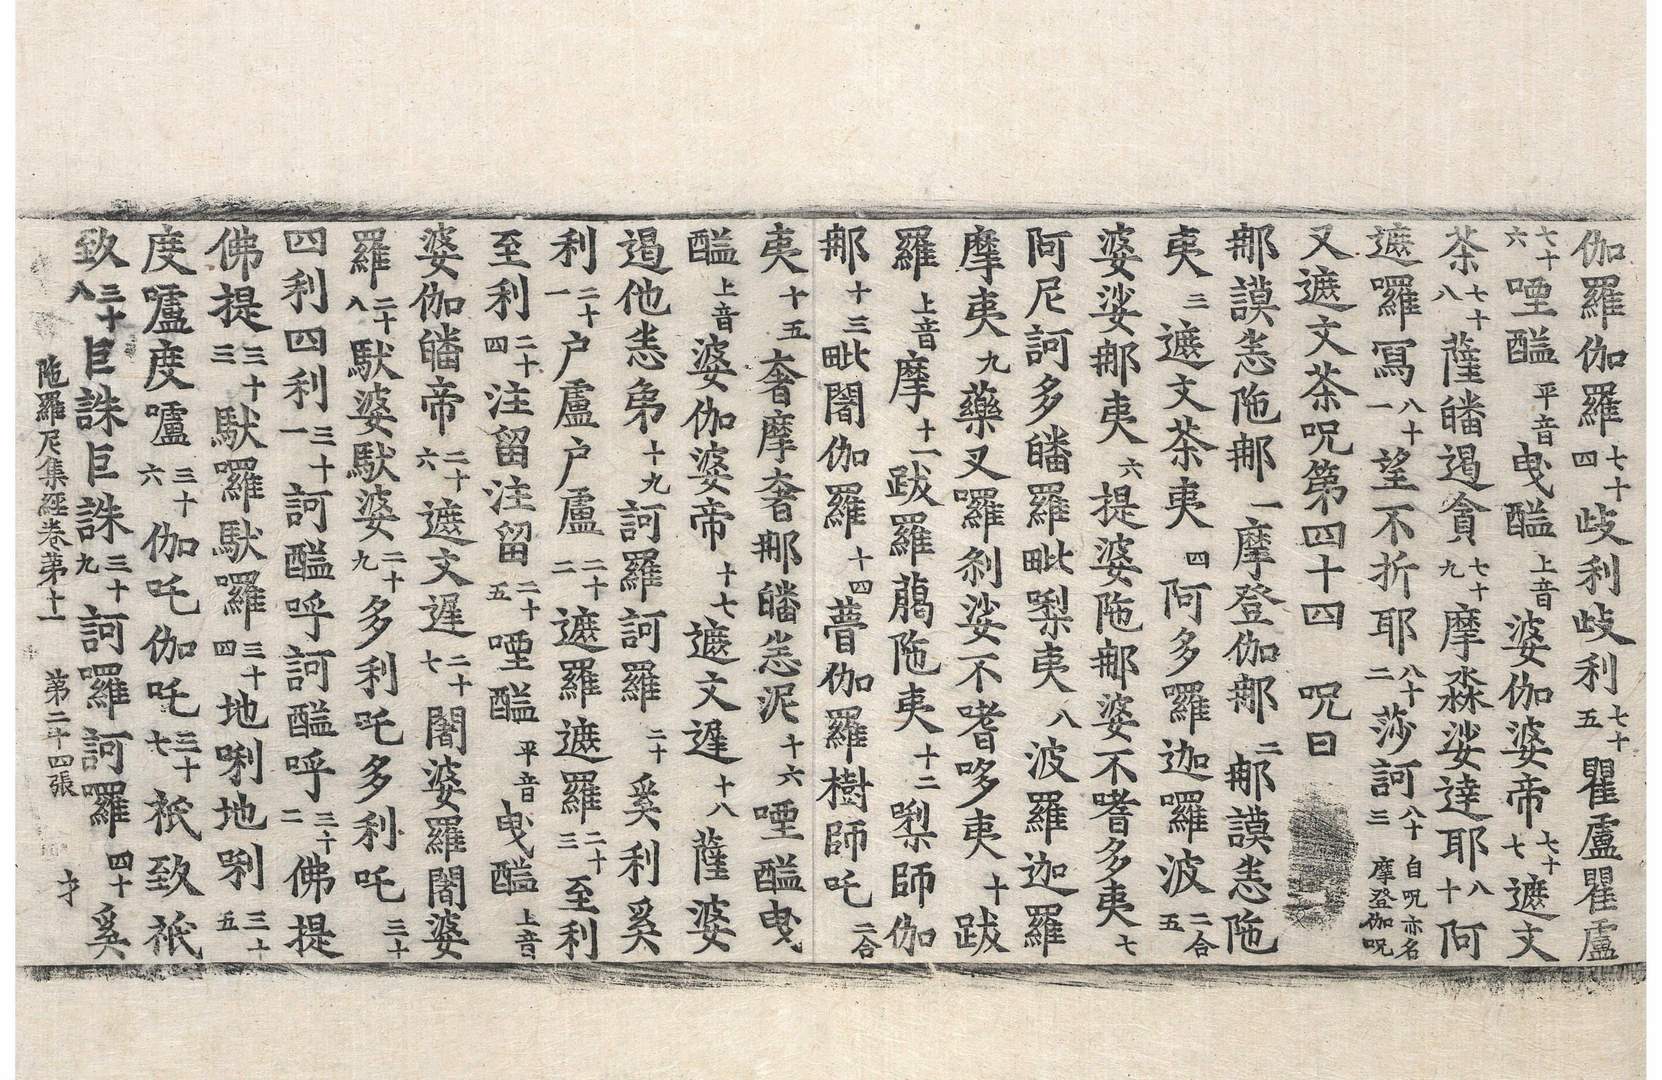 伽羅伽羅七十四歧利歧利七十五瞿盧瞿盧
七十六㗌醯平音曳醯上音婆伽婆帝七十七遮文
茶七十八薩皤遏貪七十九摩淼娑達耶八十阿
遮囉冩八十一望不折耶八十二莎訶八十三自呪亦名摩登伽呪
又遮文茶呪第四十四 呪曰
那謨恙陁那一摩登伽那二那謨恙陁
夷三遮文茶夷四阿多囉迦囉波二合五
婆娑那夷六提婆陁那婆不嗜多夷七
阿尼訶多皤羅毗㗚夷八波羅迦羅
摩夷九藥叉囉剎娑不嗜哆夷十跋
羅上音摩十一跋羅蘮陁夷十二㗚師伽
那十三毗闍伽羅十四瞢伽羅樹師吒二合
夷十五奢摩奢那皤恙泥十六㗌醯曳
醯上音婆伽婆帝十七遮文遲十八薩婆
遏他恙弟十九訶羅訶羅二十奚利奚
利二十一户盧户盧二十二遮羅遮羅二十三至利
至利二十四注留注留二十五㗌醯平音曳醯上音
婆伽皤帝二十六遮文遲二十七闍婆羅闍婆
羅二十八馱婆馱婆二十九多利吒多利吒三十
四利四利三十一訶醯呼訶醯呼三十二佛提
佛提三十三馱囉馱囉三十四地唎地唎三十五
度嚧度嚧三十六伽吒伽吒三十七祇致祇
致三十八巨誅巨誅三十九訶囉訶囉四十奚
陁羅尼集經卷第十一 第二十四張 才